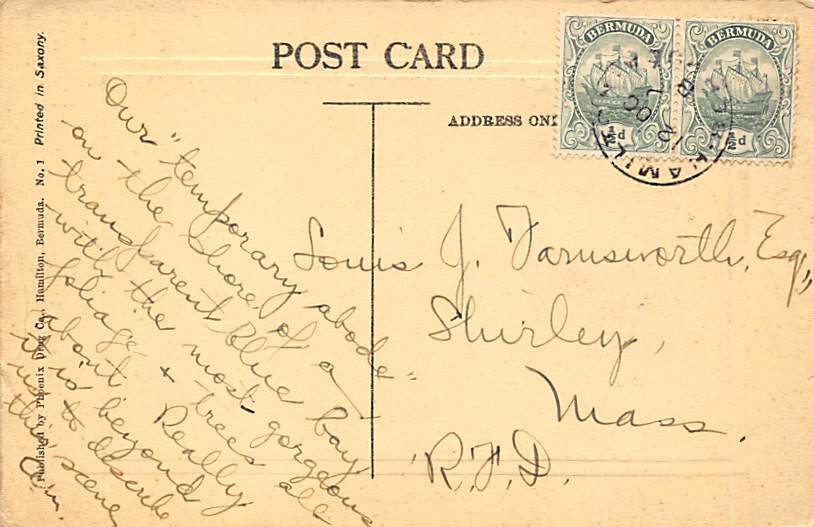 POST CARD
ADDRESS ON
BERMUDA
BERMUDA
½d
½d
HAMILT
OC
Printed in Saxony.
Published by Phoenix Drug Co., Hamilton, Bermuda. No. 1
Our "temporary abode"
on the shore of a
transparent Blue bay
with the most gorgeous
foliage & trees all
about Really
it is beyond
us to describe
this scene
Louis J. Farnsworth, Esq.,
Shirley,
Mass.
R.F.D.